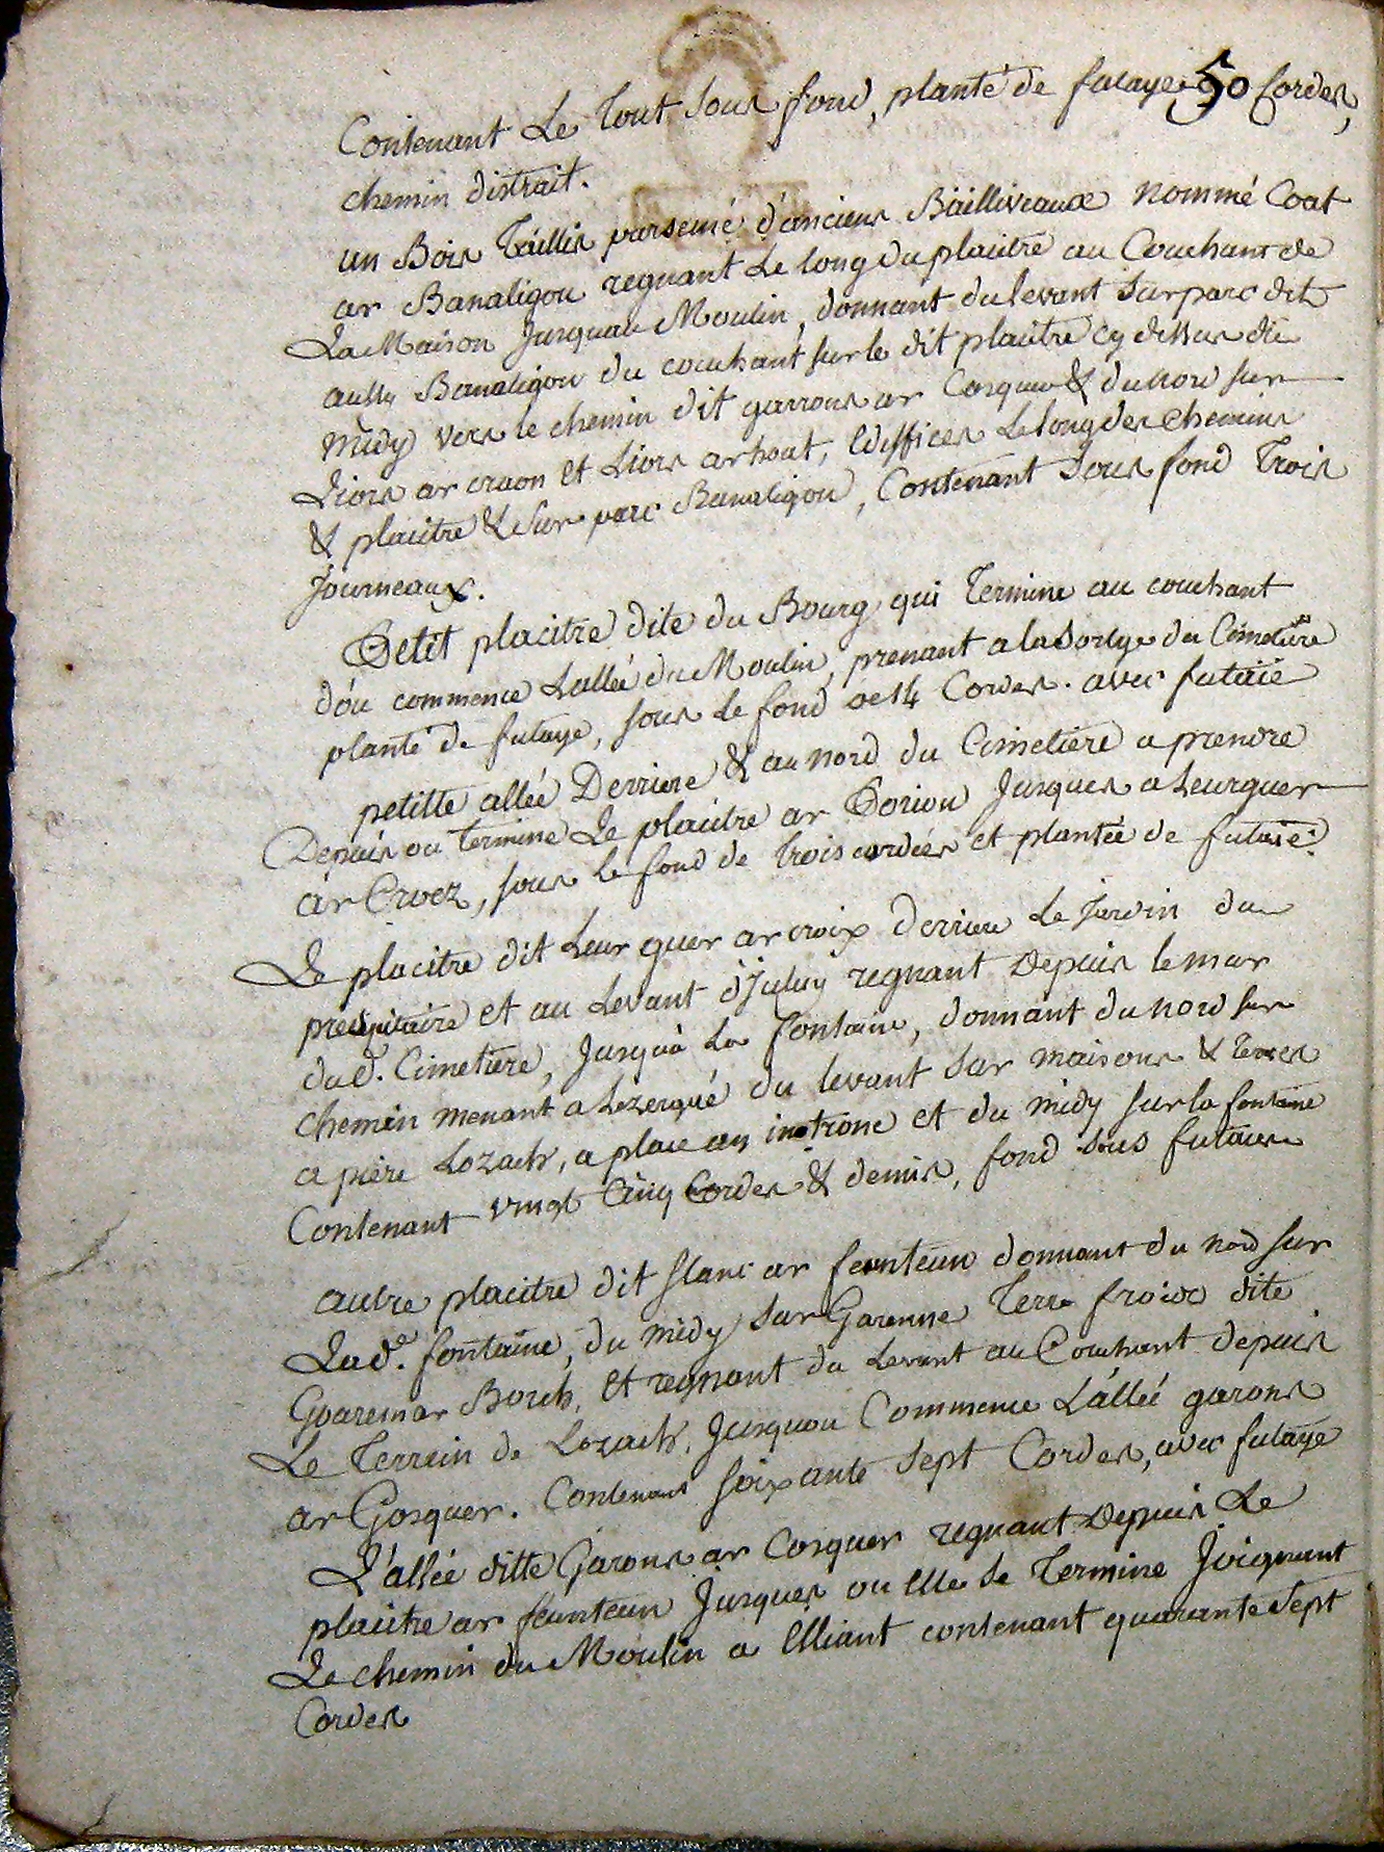 Contenant Le Tout Sous fond, planté de futaye 50 Cordes,
chemin distrait.
un Bois Taillis parsemé d'anciens Bailliveaux nommé Coat
ar Banaligou regnant Le long du placitre au Couchant de
La Maison Jusquau Moulin, donnant du levant Sur parc dit
aussy Banaligou du couchant sur le dit placitre cy dessus du
midy vers le chemin dit garrons ar Cosquer & du nord sur
Liors ar craon et Liors ar hoat, Ediffices Le long des Chemins
& placitre & Sur parc Banaligou, Contenant Sous fond Trois
Journeaux.
Petit placitre dite du Bourg qui Termine au couchant
d'ou commence Lallée du Moulin, prenant a la Sortye du Cimetiere
planté de futaye, sous Le fond de 14 Cordes. avec futaie
petitte allée Derriere & au nord du Cimetiere a prendre
Depuis ou Termine Le placitre ar Jusques a Leurguer
ar Croez, sous le fond de Trois cordées et plantée de futaie.
Le placitre dit Leur guer ar croix Derriere Le Jardin du
presbitaire et au Levant d'Iceluy regnant Depuis le mur
dud. Cimetiere, Jusqu'a La fontaine, donnant du nord sur
chemin menant a Lezergué du levant Sur maisons & Terres
a piere Lozach, a place an introne et du midy sur la fontaine
Contenant vingt Cinq Cordes & demis, fond sous futaies
autre placitre dit Stanc ar feunteun donnant du nord sur
Lad.e fontaine, du midy Sur Garenne Terre froide dite
Goarem ar Borch, et regnant du Levant au Couchant depuis
Le Terrein de Lozach, Jusquou Commence L'allée garons
ar Gosquer. Contenant soixante Sept Cordes, avec futaye
L'allée ditte Garons ar Cosquer regnant Depuis Le
placitre ar feunteun Jusques ou Elle se Termine Joignant
Le chemin du Moulin a Elliant contenant quarante Sept
Cordes